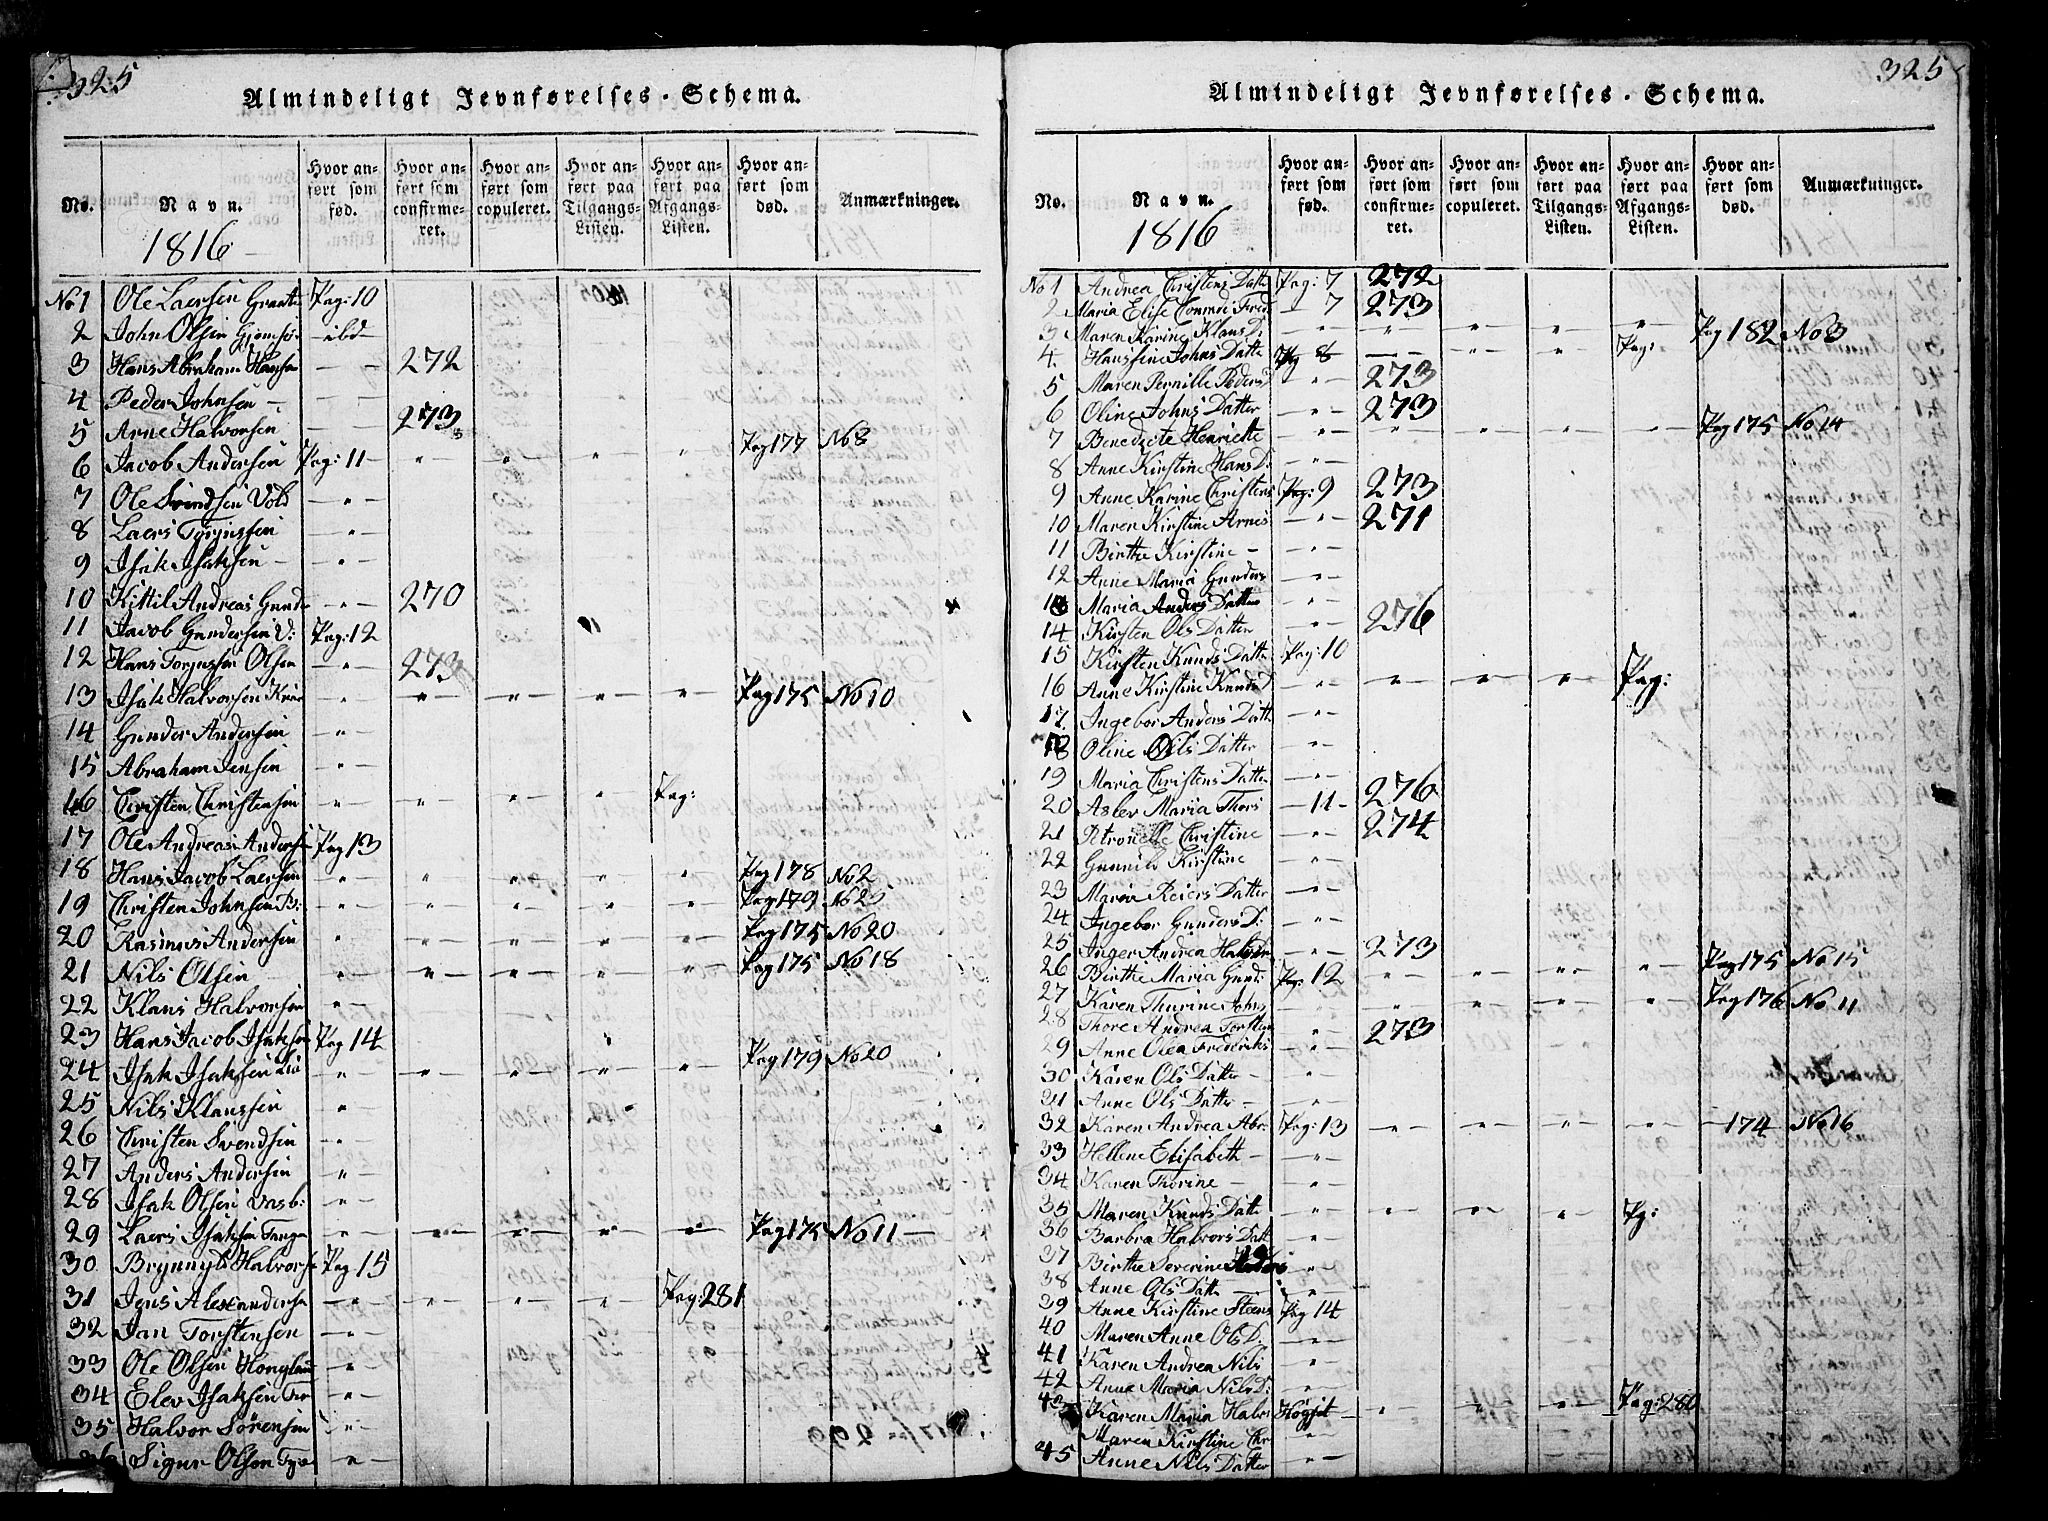 325
Almindeligt Jevnførelses-Schema.
No. Navn. Hvor anført som fød. Hvor anført som confirmeret. Hvor anført som copuleret. Hvor anført paa Tilgangs-Listen. Hvor anført paa Afgangs-Listen. Hvor anført som død. Anmærkninger.
1816
No 1 Ole Laersen Pag: 10
2 John Olsen - ibd -
3 Hans Abraham Hansen - - 272
4 Peder Johnsen - - -
5 Arne Halvorsen - 273
6 Jacob Andersen Pag: 11 - " - " - " - " - Pag 177 No 8
7 Ole Svendsen Vold - " -
8 Laers Torjussen - " -
9 Isak Isaksen - - " -
10 Kittil Andreas Gund - " - 270
11 Jacob Gundersen V: Pag: 12
12 Hans Torjussen Olsen - " - 273
13 Isak Halvorsen - " - " - " - " - " - Pag 175 No 10
14 Gunder Andersen - " -
15 Abraham Jensen - " -
16 Christen Christensen - " - " - " - " - Pag:
17 Ole Andreas Andersen Pag 13
18 Hans Jacob Laersen " - " - " - " - " - Pag 178 No 2
19 Christen Johnsen B: " - " - " - " - " - Pag 179 No 25
20 Rasmus Andersen " - " - " - " - " - Pag 175 No 20
21 Nils Olsen " - " - " - " - " - Pag 175 No 18
22 Klaus Halvorsen - " -
23 Hans Jacob Isaksen Pag 14
24 Isak Isaksen " - " - " - " - " - Pag 179 No 20
25 Nils Klaussen " -
26 Christen Svendsen " -
27 Anders Andersen " -
28 Isak Olsen Vasb: " -
29 Laers Isaksen Tange " - " - " - " - " - Pag 175 No 11 -
30 Brynnyld Halvors Pag 15
31 Jens Alexanders - " - " - " - " - Pag: 281
32 Jan Torstensen - " -
33 Ole Olsen - " -
34 Elev Isaksen - " -
35 Halvor Sørensen " -
36 Sigur Olsen " -
325
Almindeligt Jevnførelses-Schema.
No. Navn. Hvor anført som fød. Hvor anført som confirmeret. Hvor anført som copuleret. Hvor anført paa Tilgangs-Listen. Hvor anført paa Afgangs-Listen. Hvor anført som død. Anmærkninger.
1816
No 1 Andrea Christens Datte Pag: 7 272
2 Maria Elise Conradi Fred - 7 273
3 Maren Karine Klaus D: - " - " - " - " - " Pag 182 No 3
4 Hanssine Johns Datte Pag 8 - - - " - " Pag:
5 Maren Pernille Peders D - " - 273
6 Oline Johns Datter - " - 273
7 Benedicte Henriette - " - " - " - " - " - Pag 175 No 14
8 Anne Kirstine Hans D: - " -
9 Anne Karine Christens Pag: 9 273
10 Maren Kirstine Arnes - " - 271
11 Birthe Kirstine - - " -
12 Anne Maria Gunders - " -
13 Maria Anders Datter - " -
14 Kirsten Ols Datter - " - 276
15 Kirsten Knuds Datte Pag: 10
16 Anne Kirstine Knuds D - " - " - " - " - Pag:
17 Ingebor Anders Datt - " -
18 Oline Nils Datter - " -
19 Maria Christens Datter - " -
20 Aslev Maria Thors - 11 - 276
21 Petronelle Christine - " - 274
22 Gunnild Kirstine - " -
23 Maria Reiers Datter - " -
24 Ingebor Gunders D: - " -
25 Inger Andrea - " - 273
26 Birthe Maria Gund: Pag: 12 - " - " - " - " - Pag 175 No 15
27 Karen Thurine Johns - " - " - " - " - " - Pag 176 No 11
28 Thore Andrea Torsten - " - 273
29 Anne Olea Frederiks - " -
30 Karen Ols Datter - - " -
31 Anne Ols Datter - - " -
32 Karen Andrea Abr: Pag: 13 - " - " - " - - 174 No 16
33 Hellene Elisabeth - - " -
34 Karen Thorine - - " -
35 Maren Knuds Datt - " - " - " - " - Pag:
36 Barbra Halvors Datt - " -
37 Birthe Severine - " -
38 Anne Ols Datte - " -
39 Anne Kirstine Steens Pag 14
40 Maren Anne Ols D. - " -
41 Karen Andrea Nils - " -
42 Anne Maria Nils D: - " -
43 Karen Maria Halvs - " - " - " - Pag: 280
Maren Kirstine Chr - " -
45 Anne Nils Datter - " -